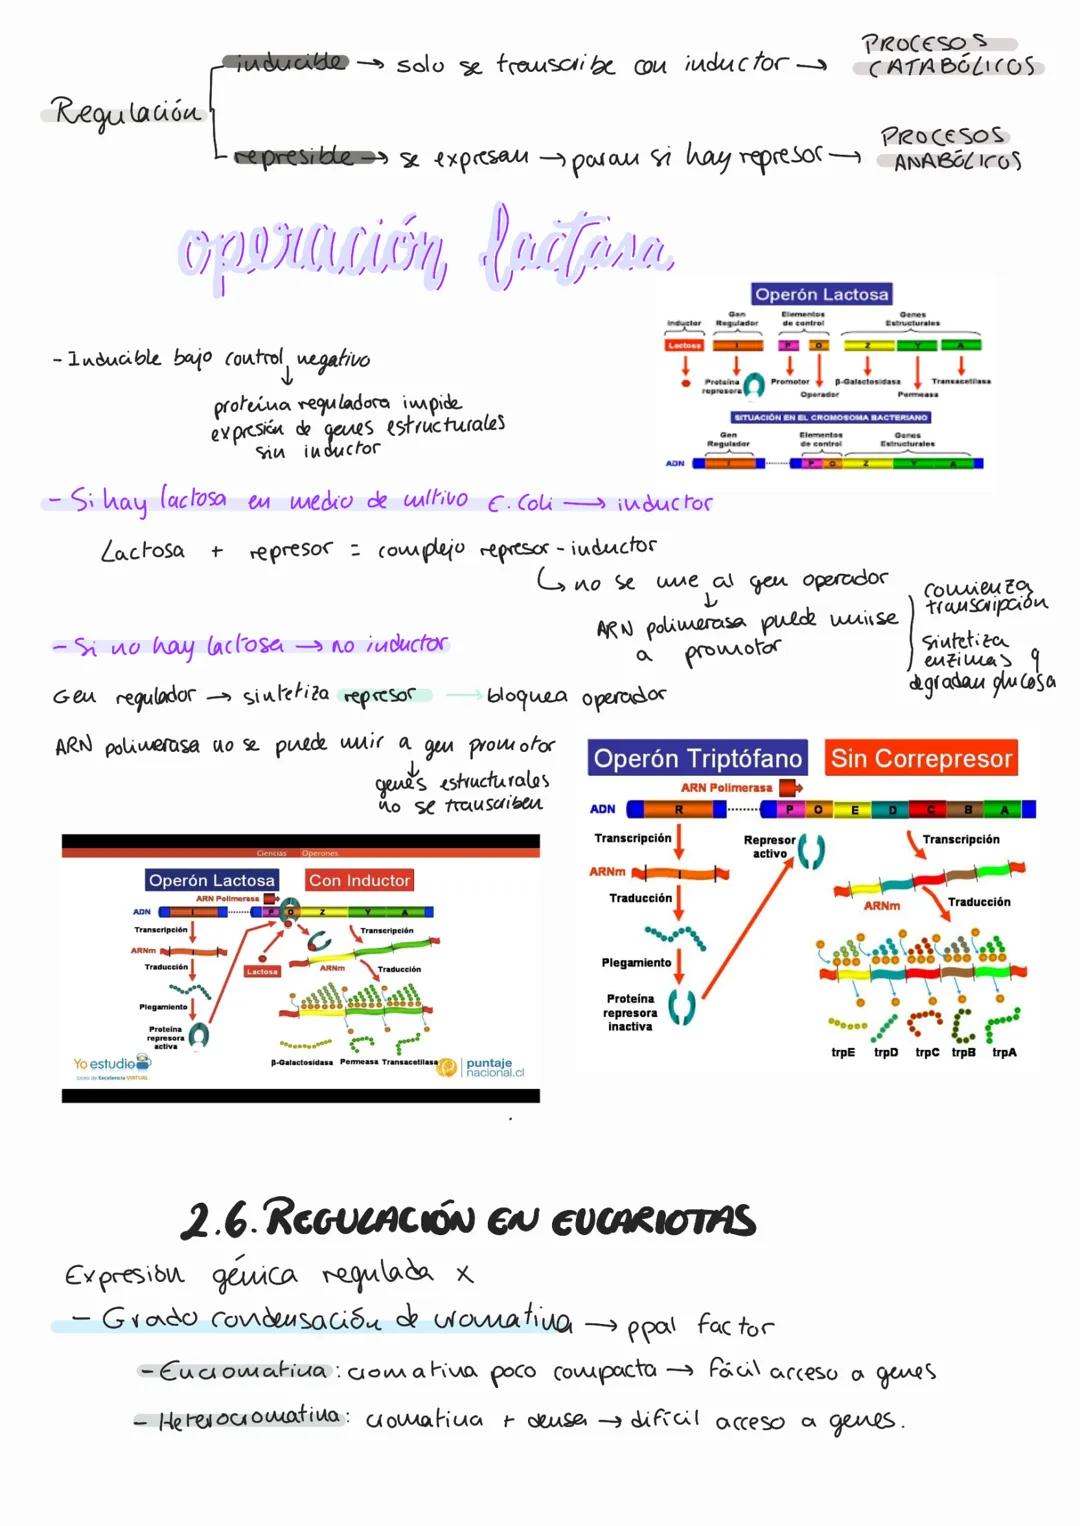 inducible → solo se transcribe con inductor → PROCESOS CATABÓLICOS
Regulación
represible → se expresan → paran si hay represor → PROCESOS ANABÓLICOS
operación lactasa
- Inducible bajo control negativo
proteína reguladora impide
expresión de genes estructurales
sin inductor
Operón Lactosa
Inductor
Gen Regulador
Elementos de control
Genes Estructurales
Lactosa
I
P O Z Y A
Proteína represora
Promotor
Operador
β-Galactosidasa
Permeasa
Transacetilasa
SITUACIÓN EN EL CROMOSOMA BACTERIANO
Gen Regulador
Elementos de control
Genes Estructurales
ADN
I P O Z Y A
- Si hay lactosa en medio de cultivo E. Coli → inductor
Lactosa + represor = complejo represor - inductor
↳ no se une al gen operador
↓
ARN polimerasa puede unirse
a promotor
comienza
transcripción
sintetiza
enzimas q
degradan glucosa
- Si no hay lactosa → no inductor
Gen regulador → sintetiza represor → bloquea operador
ARN polimerasa no se puede unir a gen promotor
↓
genes estructurales
no se transcriben
Operón Triptófano
Sin Correpresor
ARN Polimerasa
ADN R P O E D C B A
Transcripción
Represor activo
Transcripción
ARNm
I
Traducción
ARNm
Traducción
Plegamiento
Proteína
represora
inactiva
trpE trpD trpC trpB trpA
Ciencias Operones
Operón Lactosa
Con Inductor
ARN Polimerasa
ADN I P O Z Y A
Transcripción
Transcripción
ARNm
Traducción
Lactosa
ARNm
Traducción
Plegamiento
Proteína
represora
activa
β-Galactosidasa Permeasa Transacetilasa
Yo estudio
Liceo de Excelencia VIRTUAL
puntaje
nacional.cl
2.6. REGULACIÓN EN EUCARIOTAS
Expresión génica regulada x
- Grado condensación de cromatina → ppal factor
- Eucromatina: cromatina poco compacta → fácil acceso a genes
- Heterocromatina: cromatina + densa → difícil acceso a genes.